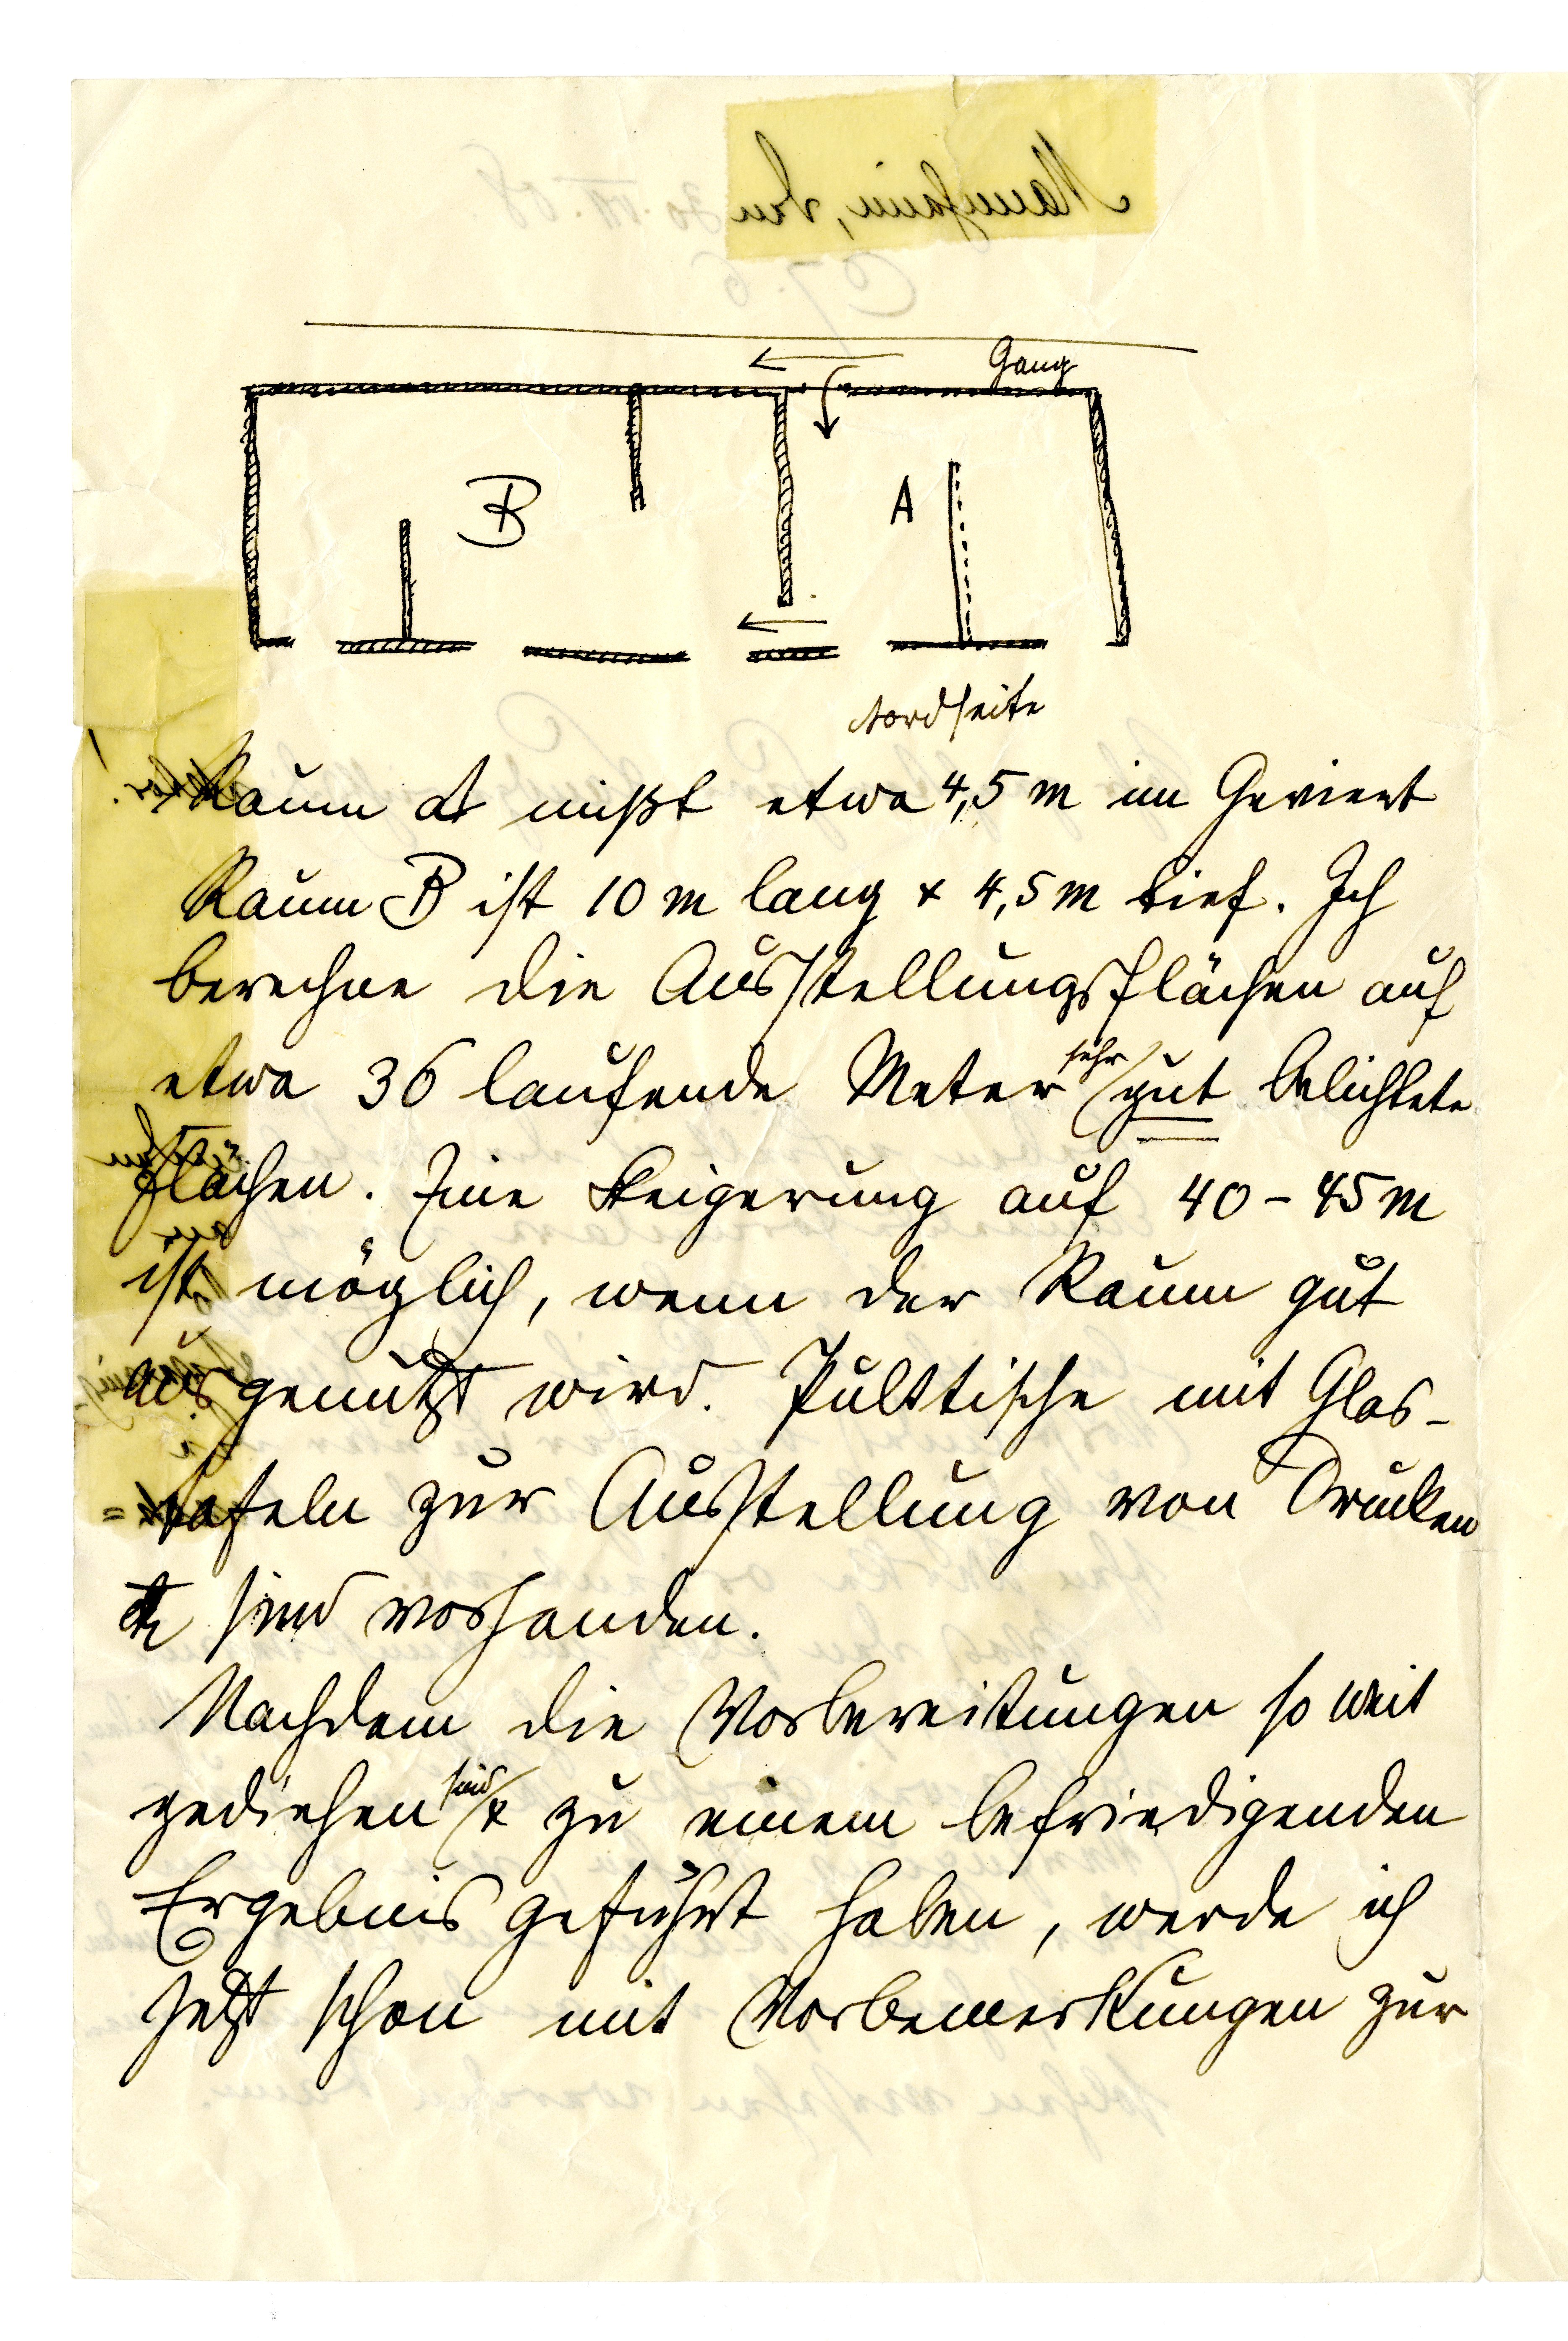 Gang
B
A
Nordseite
Raum A mißt etwa 4,5 m im Geviert
Raum B ist 10 m lang & 4,5 m tief. Ich
berechne die Ausstellungsflächen auf
etwa 36 laufende Meter sehr gut belichtete
Flächen. Eine Steigerung auf 40–45 m
ist möglich, wenn der Raum gut
ausgenützt wird. Pulttische mit Glas-
tafeln zur Ausstellung von Drucken
etc sind vorhanden.
Nachdem die Vorbereitungen so weit
gediehen sind & zu einem befriedigenden
Ergebnis geführt haben, werde ich
jetzt schon mit Vorbemerkungen zur